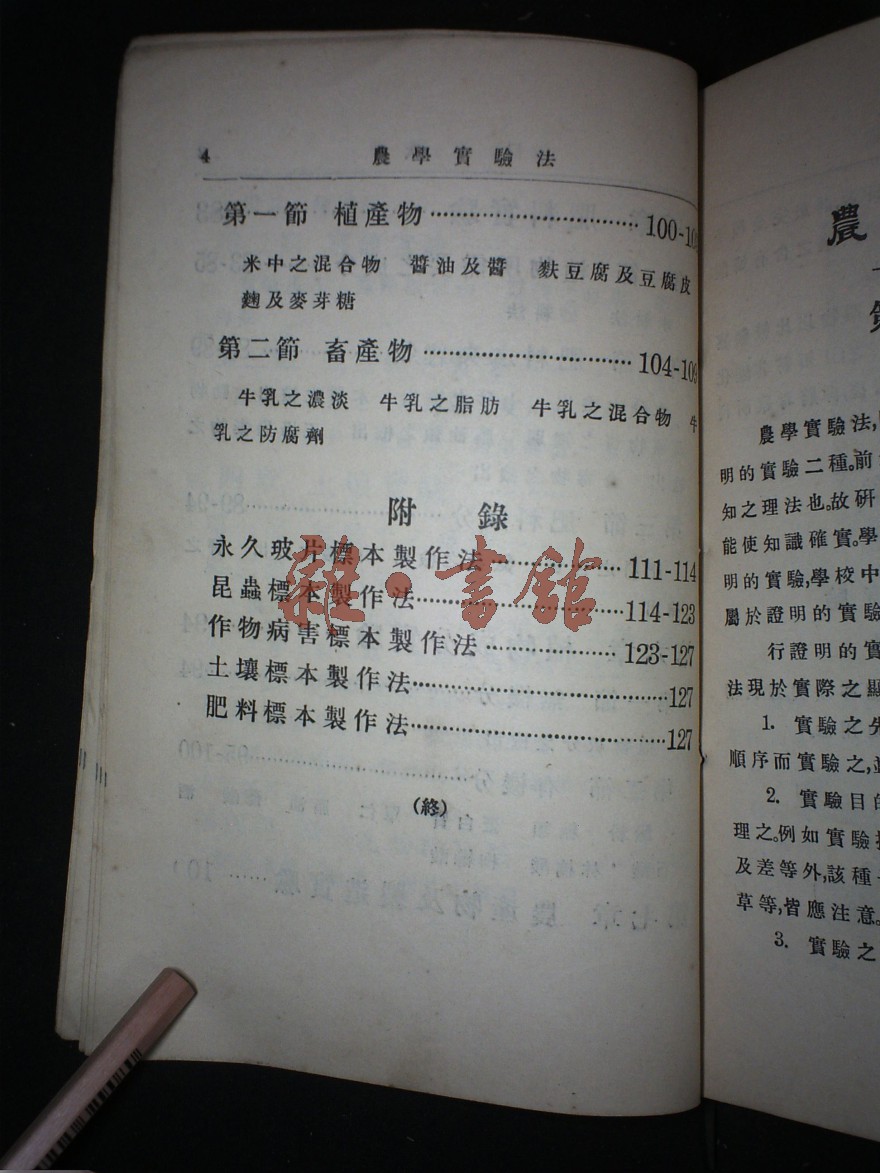 4 農學實驗法
第一節 植產物……………………………100-10
米中之混合物 醬油及醬 麩豆腐及豆腐皮
麴及麥芽糖
第二節 畜產物……………………………104-109
牛乳之濃淡 牛乳之脂肪 牛乳之混合物 牛
乳之防腐劑
附 錄
永久玻片標本製作法……………………111-114
昆蟲標本製作法……………………………114-123
作物病害標本製作法…………………123-127
土壤標本製作法……………………………………127
肥料標本製作法……………………………………127
(終)
雜·書館
農
農學實驗法,
明的實驗二種。前
知之理法也。故研
能使知識確實。學
明的實驗,學校中
屬於證明的實驗
行證明的實
法現於實際之顯
1. 實驗之先
順序而實驗之,並
2. 實驗目的
理之。例如實驗
及差等外,該種
草等,皆應注意。
3. 實驗之